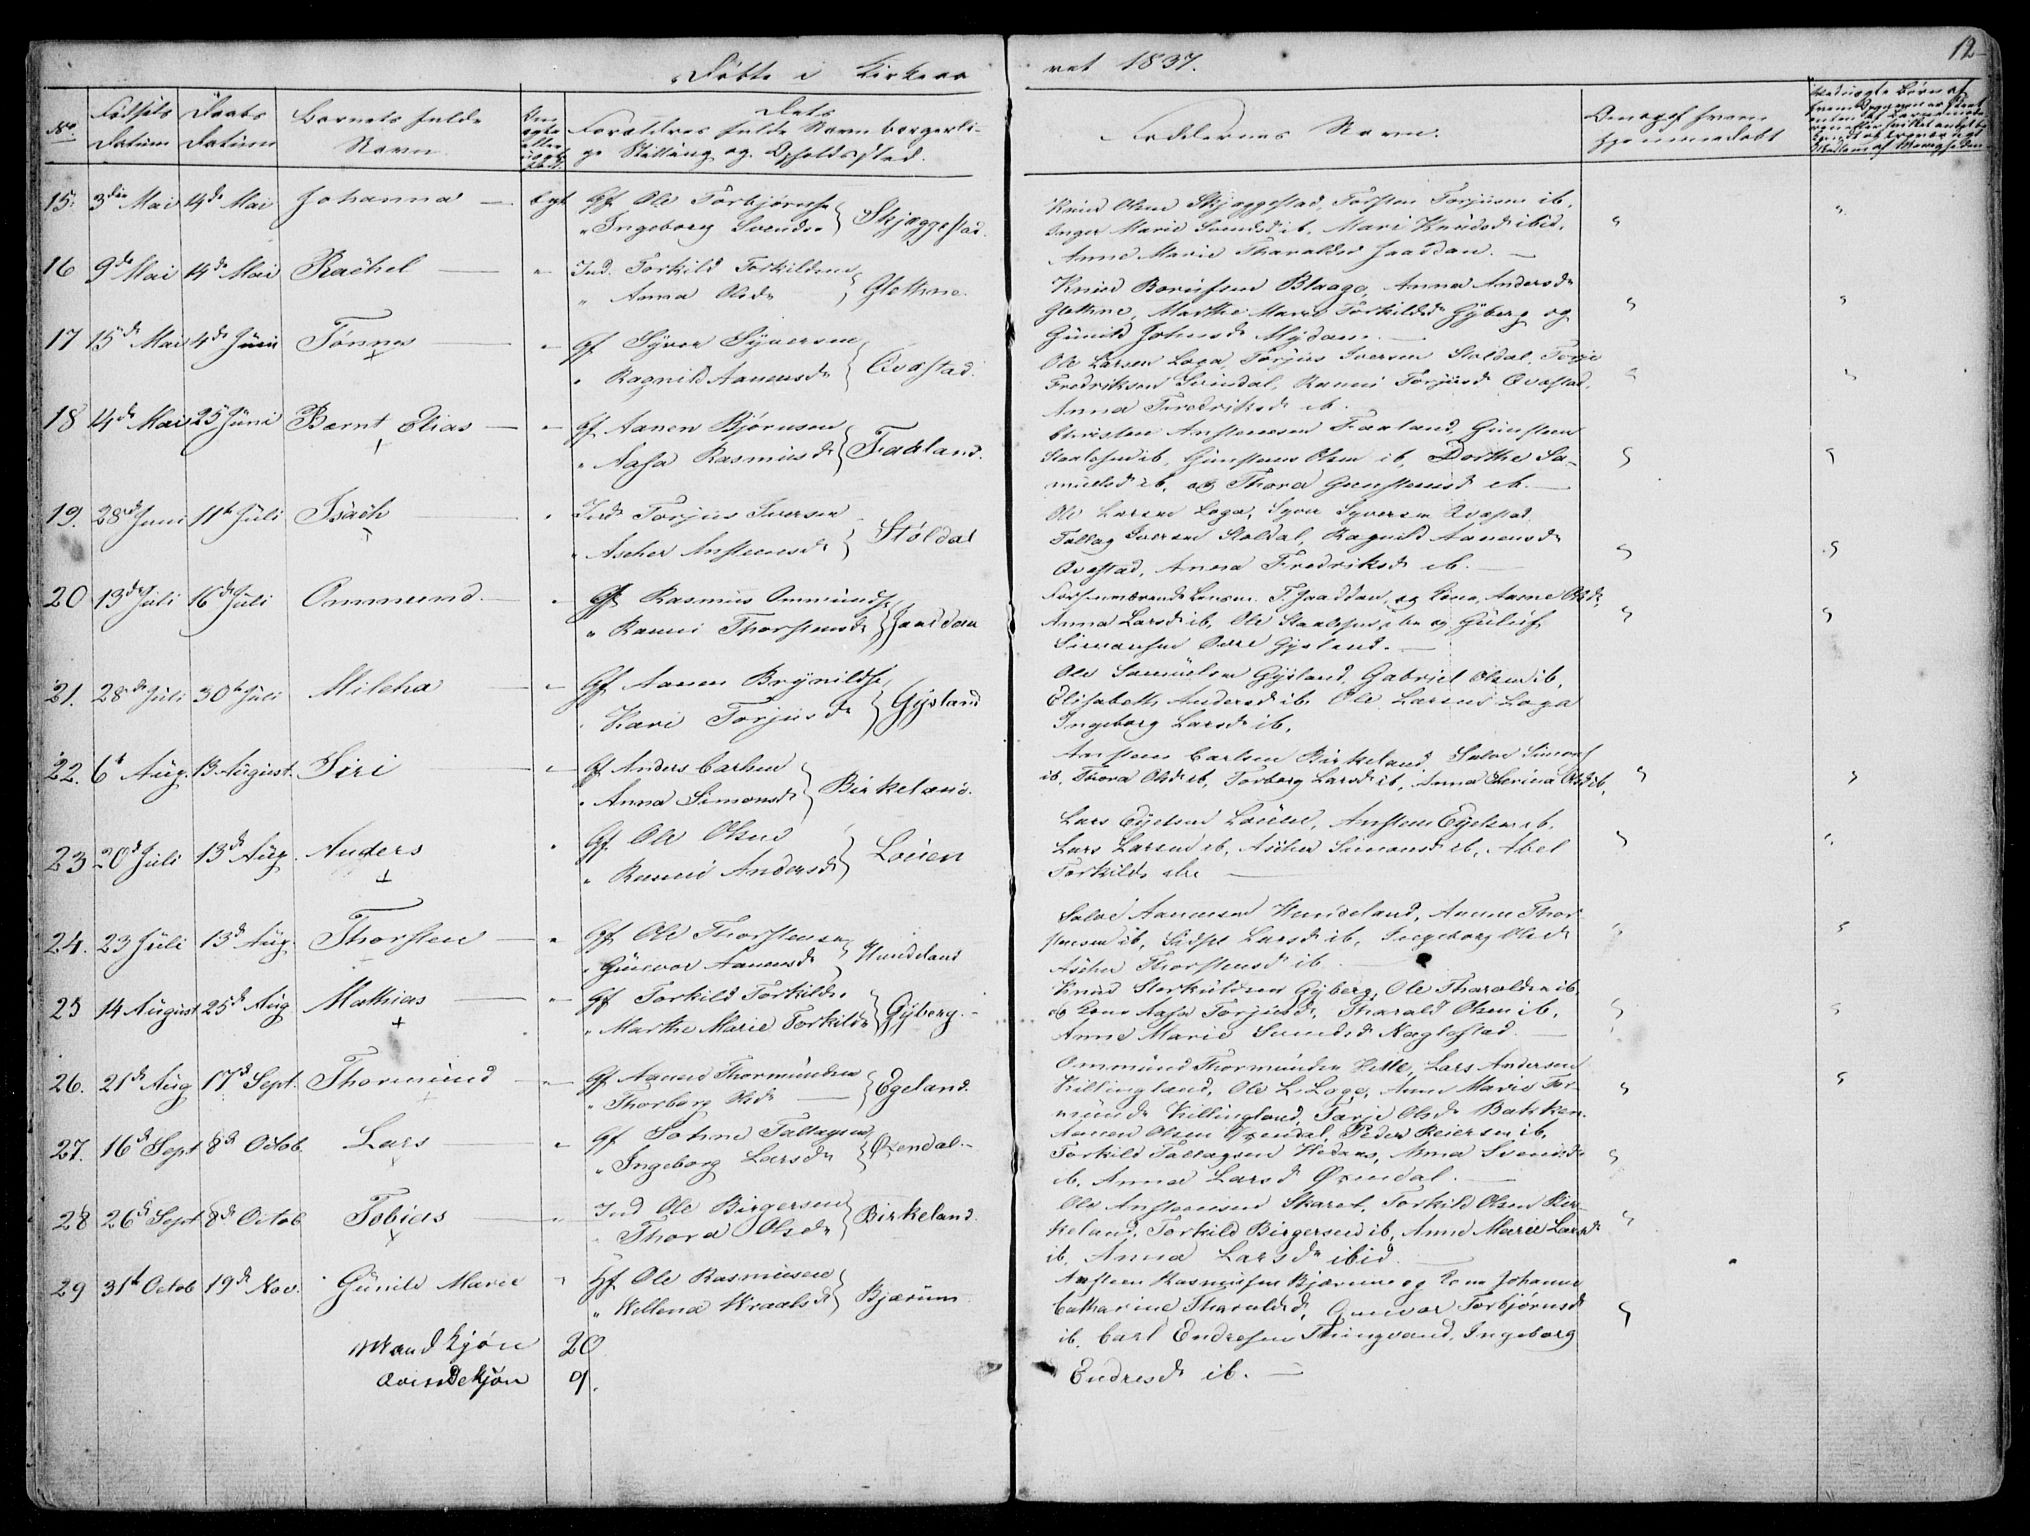 Døbte i Kirkeaa
ret 1837.
12
No.
Fødsels Datum
Daabs Datum
Barnets fulde Navn.
Forældres fulde Navn borgerli-
ge Stilling og Opholdssted.
Faddernes Navn.
15. 3die Mai 14de Mai Johanna Ægt Gf Ole Torbjørns
" Ingeborg Svends Skjæggestad.
Knud Olsen Skjæggestad, Torsten Torjusen ib,
Inger Marie Svendsd ib, Mari Knudsd ibid,
Anne Marie Tharaldsd Jaaddan.
16 9de Mai 14de Mai Rachel " Ind. Torkild Torkildsen
" Anna Olsd Glethne.
Knud Blaage, Anna Andersd
Glethne, Marthe Marie Torkildsd Gyberg og
Gunild Johnsd
17 15de Mai 4de Juni Tønnes " Gf Syver Syversen
" Ragnild Aanensd Qvastad.
Ole Larsen Loga, Torjus Iversen Stoldal,
Fredriksen Svindal, Ranni Torjusd Qvastad,
Anna Fredriksd ib.
18 14de Mai 25 Juni Bernt Elias " Gf Aanen Bjørnsen
" Aasa Rasmusd Faaland.
Christen Anstensen Faaland, Gunsteen
Staalesen ib, Gunsteen Olsen ib, Dorthe Sa-
muelsd ib, og Thora Gunsteensd ib.
19. 28de Juni 11te Juli Isach " Ind. Torjus Iversen
" Ascher Anstensd Støldal
Ole Larsen Loga, Syver Syversen Qvastad,
Tallag Iversen Stoldal, Ragnild Aanensd
Qvastad, Anna Fredriksd ib.
20 13de Juli 16de Juli Ommund " Gf Rasmus Ommunds
" Ranni Thorstensd Jaaddan
T. Jaaddan, og Kone, Aasne Olsd,
Anna Larsd ib, Ole Staalesen ibn og Guluf
Simonsen Øvre Gysland.
21. 28de Juli 30te Juli Milcha " Gf Aanen Brynilds
Kari Torjusd Gysland
Ole Samuelsen Gysland, Gabriel Olsen ib,
Elisabeth Andersd ib, Ole Larsen Loga
Ingeborg Larsd ib,
22. 6te Aug. 13 August. Siri " Gf Anders Carlsen
" Anna Simonsd Birkeland.
Ansteen Carlsen Birkeland, Salve Simons
ib, Thora Olsd ib, Torborg Larsd ib, Anna Serina Olsd ib,
23 20de Juli 13de Aug. Anders " Gf Ole Olsen
" Ranni Andersd Louen
Lars Eyelsen Louen, Ansteen Eyelsen ib,
Lars Larsen ib, Ascher Simonsd ib, Abel
Torkilds
24. 23 Juli 13de Aug. Thorsten " Gf Ole Thorstensen
" Gunvor Aanensd Hundeland
Salve Aanensen Hundeland, Aanen Thor-
stensen ib, Sidsel Larsd ib, Ingeborg Olsd
Ascher Thorstensd ib
25 14 August 25de Aug Mathias " Gf Torkild Torkilds.
" Marthe Marie Torkildsd Gyberg.
Knud Storkuldsen Gyberg, Ole Tharaldsen ib,
og Kone Aasa Torjusd, Tharald Olsen ib,
Anne Marie Svendsd Næglestad.
26. 21de Aug 17de Sept. Thormund " Gf Aanen Thormundsen
" Thorborg Olsd Egeland.
Ommund Thormundsen Helle, Lars Andersen
Killingland, Ole L. Loga, Anne Marie Tor-
munds Killingland, Tarje Olsd Bakken.
27. 16de Sept 8de Octob. Lars " Gf Sohne Tallagsen
" Ingeborg Larsd Øxendal.
Aanen Olsen Øxendal, Peder Reiersen ib,
Torkild Tallagsen Hedans, Anna Svendsd
ib, Anna Larsd Øxendal.
28 26de Sept 8de Octob Tobias " Ind Ole Birgersen
Thora Olsd Birkeland.
Ole Anstensen Skaret, Torkild Olsen Bir-
keland, Torkild Birgersen ib, Anne Marie Larsd
ib, Anna Larsd ibid
29 31te Octob 19de Nov. Gunild Marie " Hf Ole Rasmusen
" Wellena Wraalsd Bjærum.
Ansteen Rasmusen Bjærum og Kone Johanne
Catharine Tharaldsd, Gunvor Torbjørnsd
ib, Carl Endresen Thingvand, Ingeborg
Endresd ib.
Mandkjøn 20.
Qvindekjøn 9.